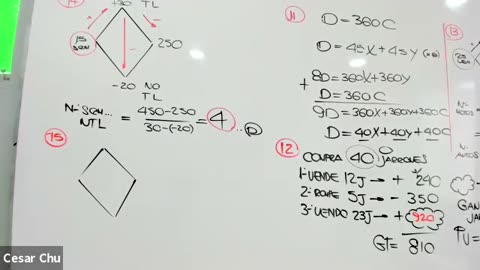 14
+30 TL
15
SEM
250
-20 NO
TL
N-SEM... = 450-250 = 4 ...D
NTL 30-(-20)
15
11
D=360C
D=45X+45Y (x8)
+ 8D=360X+360Y
D=360C
9D=360X+360Y+360C
D=40X+40Y+40C
12
COMPRA 40 JARRONES
1-VENDE 12J → + 240
2-ROMPE 5J → - 350
3-VENDO 23J → + 920
GT= 810
13
N-
N-
GAN
JA
PU=
Cesar Chu